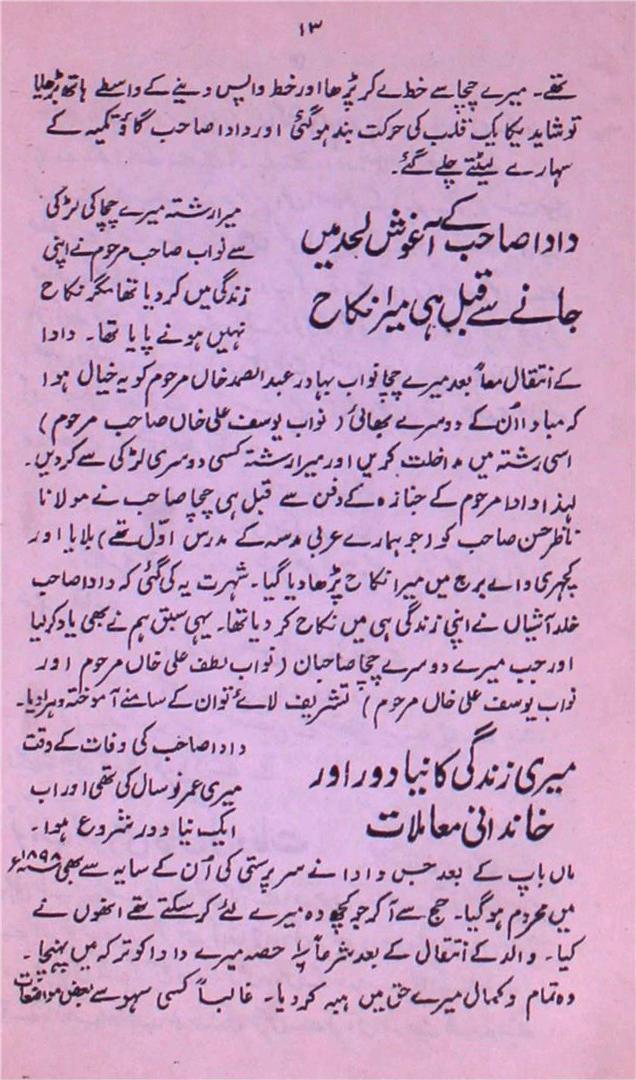 ۱۳
تھے۔ میرے چچا سے خط لے کر پڑھا اور خط واپس دینے کے واسطے ہاتھ بڑھایا
تو شاید یکایک قلب کی حرکت بند ہوگئی اور دادا صاحب گاؤ تکیہ کے
سہارے لیٹتے چلے گئے۔
دادا صاحب کے آغوش لحد میں
جانے سے قبل ہی میرا نکاح
میرا رشتہ میرے چچا کی لڑکی
سے نواب صاحب مرحوم نے اپنی
زندگی میں کر دیا تھا مگر نکاح
نہیں ہونے پایا تھا۔ دادا
کے انتقال معاً بعد میرے چچا نواب بہادر عبدالصمد خاں مرحوم کو یہ خیال ہوا
کہ مبادا اُن کے دوسرے بھائی (نواب یوسف علی خاں صاحب مرحوم)
اسی رشتہ میں مداخلت کریں اور میرا رشتہ کسی دوسری لڑکی سے کر دیں۔
لہذا دادا مرحوم کے جنازہ کے دفن سے قبل ہی چچا صاحب نے مولانا
ناظر حسن صاحب کو (جو ہمارے عربی مدسہ کے مدرس اوّل تھے) بلایا اور
کچہری والے برج میں میرا نکاح پڑھا دیا گیا۔ شہرت یہ کی گئی کہ دادا صاحب
خلد آشیاں نے اپنی زندگی ہی میں نکاح کر دیا تھا۔ یہی سبق ہم نے بھی یاد کر لیا
اور جب میرے دوسرے چچا صاحبان (نواب لطف علی خاں مرحوم اور
نواب یوسف علی خاں مرحوم) تشریف لائے تو ان کے سامنے آموختہ دہرا دیا۔
میری زندگی کا نیا دور اور
خاندانی معاملات
دادا صاحب کی وفات کے وقت
میری عمر نو سال کی تھی اور اب
ایک نیا دور شروع ہوا۔
ماں باپ کے بعد جس دادا نے سرپرستی کی اُن کے سایہ سے بھی ۱۸۹۸ء
میں محروم ہوگیا۔ حج سے آکر جو کچھ وہ میرے لئے کر سکتے تھے انھوں نے
کیا۔ والد کے انتقال کے بعد شرعاً حصہ میرے دادا کو ترکہ میں پہنچا۔
وہ تمام و کمال میرے حق میں ہبہ کر دیا۔ غالباً کسی سہو سے بعض مواضعات